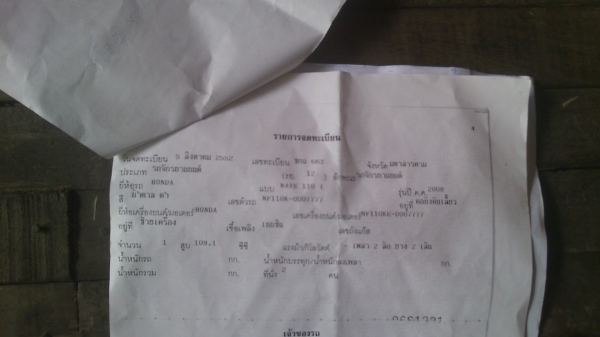 รายการจดทะเบียน
วันจดทะเบียน 5 สิงหาคม 2552 เลขทะเบียน 663 จังหวัด มหาสารคาม
ประเภท รถจักรยานยนต์ (รย. 12 ) ลักษณะ รถจักรยานยนต์
ยี่ห้อรถ HONDA แบบ WAVE 110 รุ่นปี ค.ศ. 2008
สี น้ำตาล ดำ เลขตัวรถ NF110K-0007777 อยู่ที่ คอยล์ใต้เลี้ยว
ยี่ห้อเครื่องยนต์/มอเตอร์ HONDA เลขเครื่องยนต์/มอเตอร์ NF110KK-0007777
อยู่ที่ ซ้ายเครื่อง เชื้อเพลิง เบนซิน เลขถังแก๊ส
จำนวน 1 สูบ 109.1 ซีซี แรงม้า/กิโลวัตต์ - เพลา 2 ล้อ ยาง 2 เส้น
น้ำหนักรถ กก. น้ำหนักบรรทุก/น้ำหนักลงเพลา กก.
น้ำหนักรวม กก. ที่นั่ง 2 คน
เจ้าของรถ